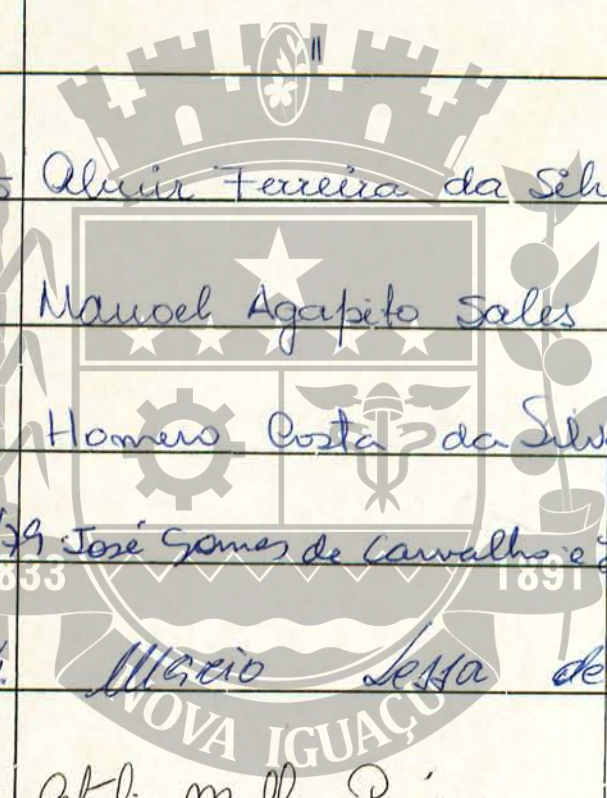 "
Almir Ferreira da Silv
Manoel Agapito Sales
Homero Costa da Silv
79 José Gomes de Carvalho e
833 1891
Márcio Lessa de
NOVA IGUAÇU